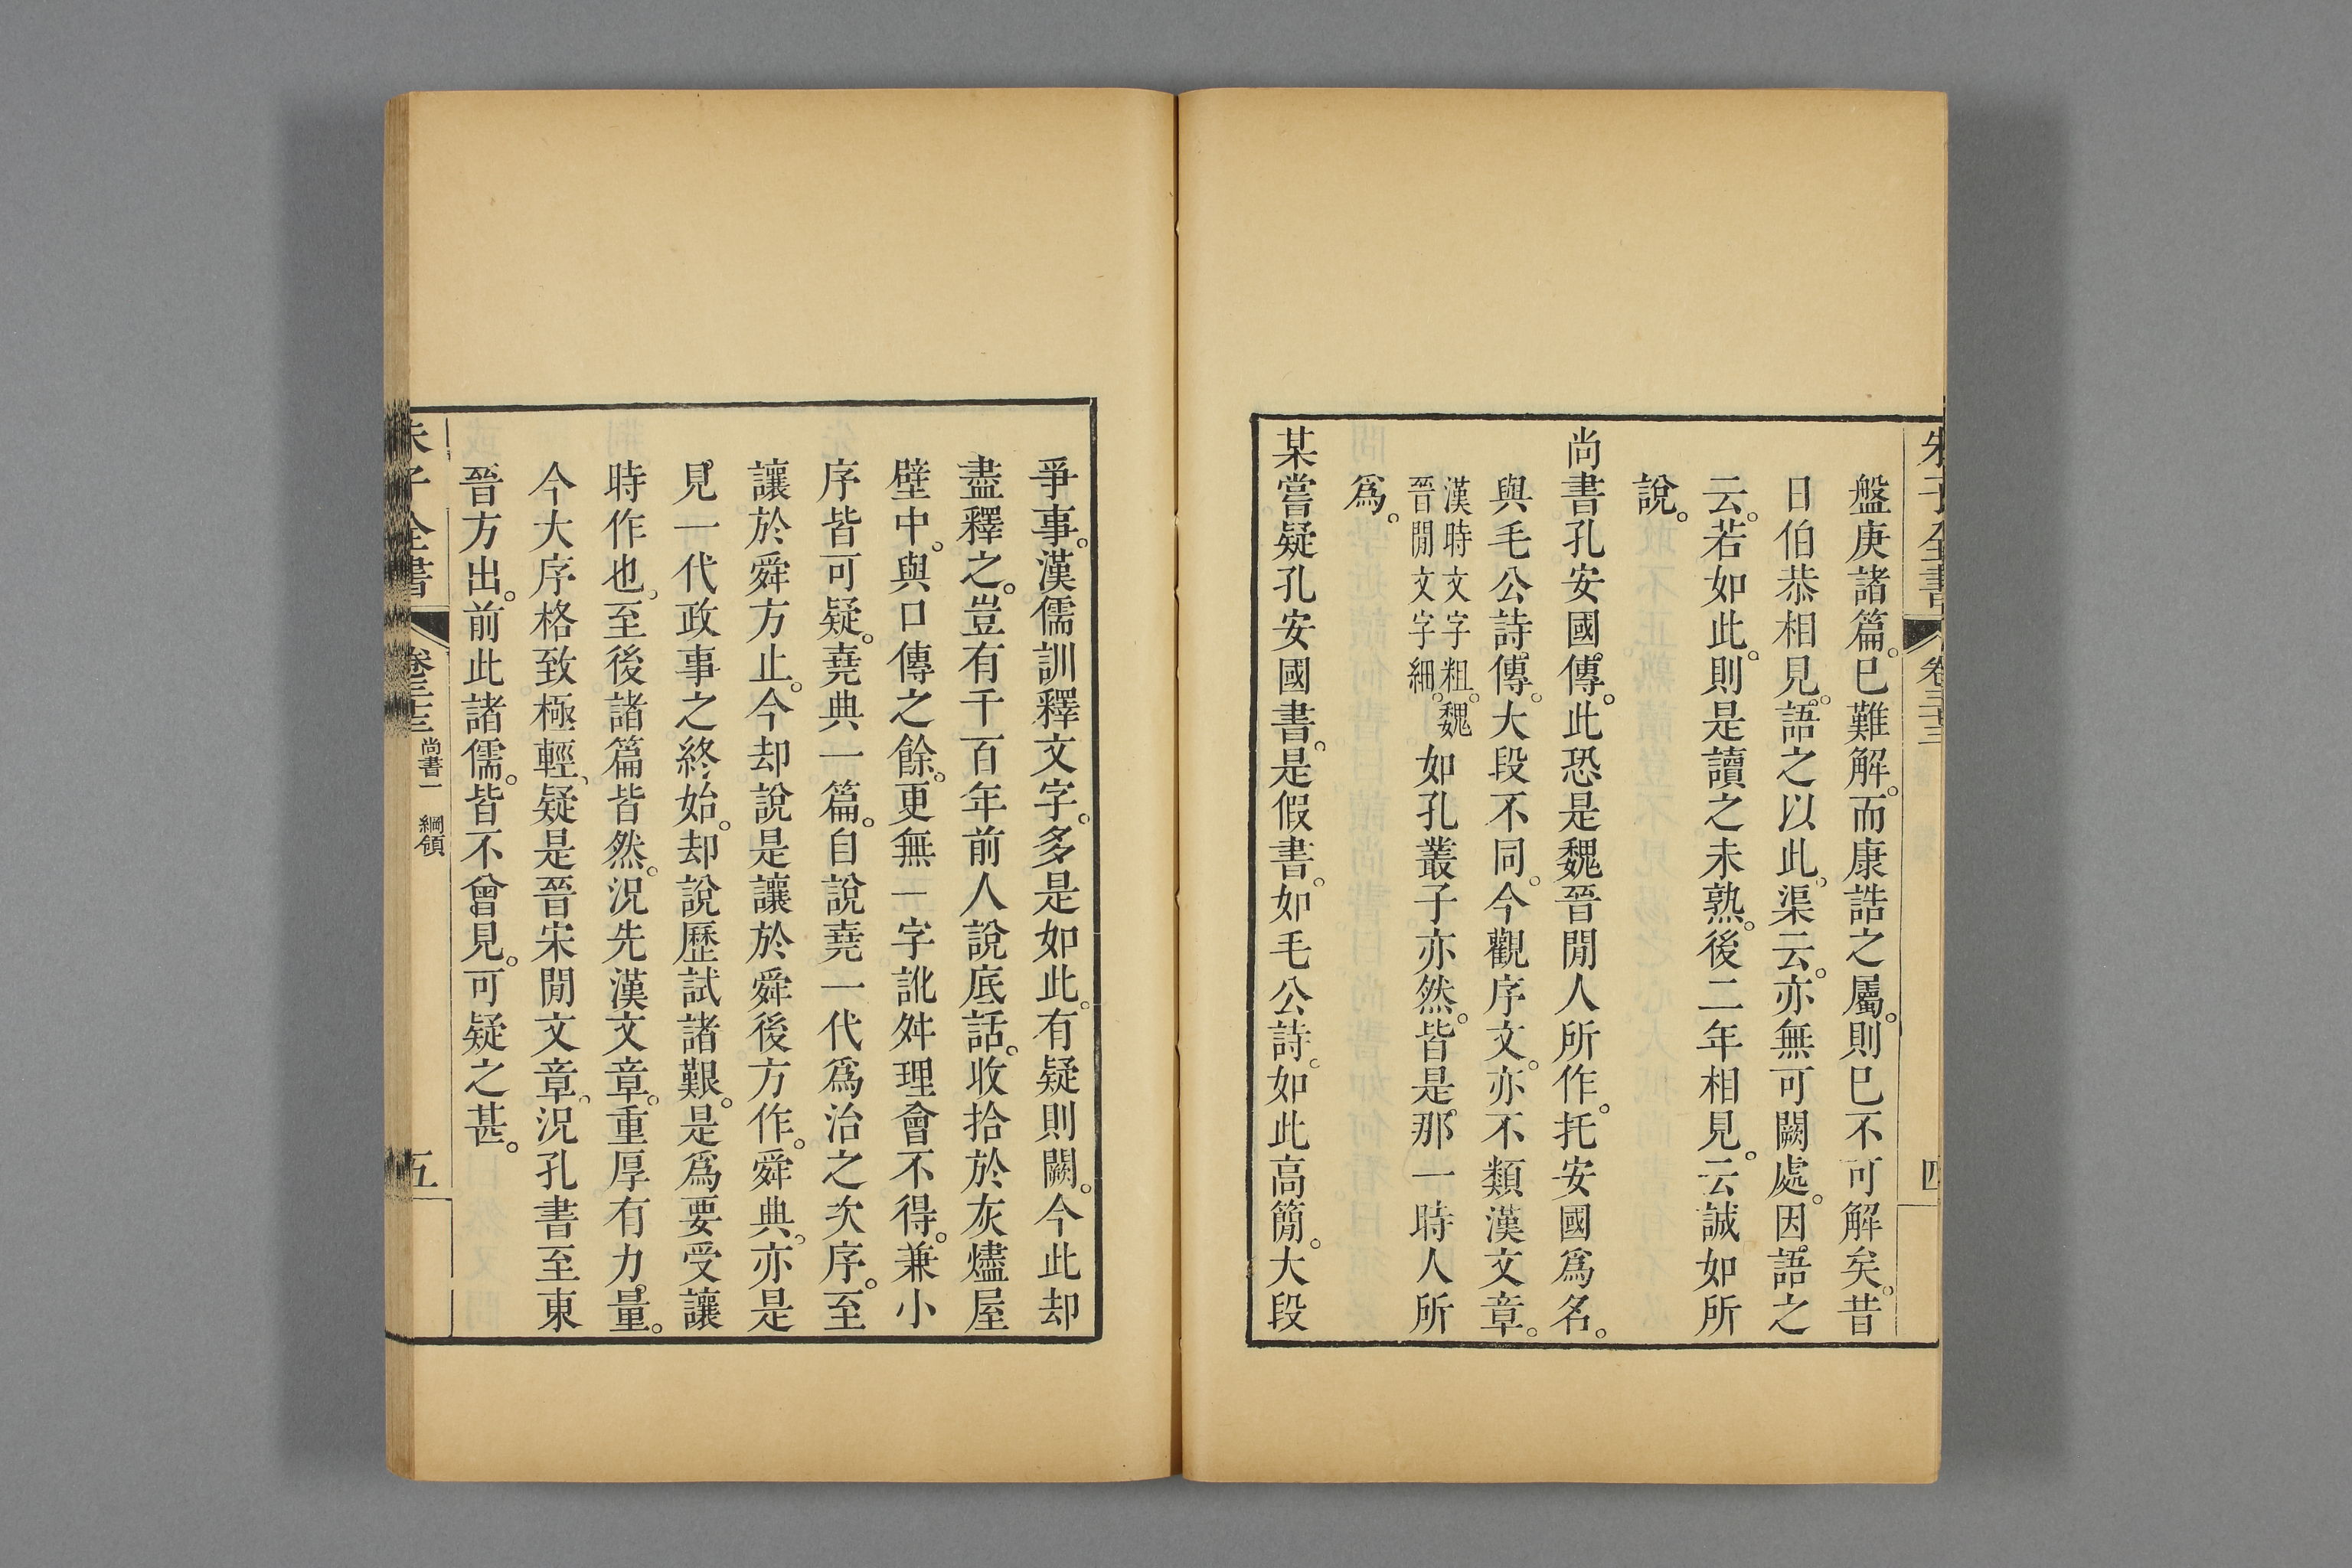 朱子全書 卷三十三 四
盤庚諸篇。巳難解。而康誥之屬。則巳不可解矣。昔
日伯恭相見。語之以此。渠云。亦無可闕處。因語之
云。若如此。則是讀之未熟。後二年相見。云誠如所
說。
尚書孔安國傳。此恐是魏晉閒人所作。托安國爲名。
與毛公詩傳。大段不同。今觀序文。亦不類漢文章。
漢時文字粗。魏
晉閒文字細。
如孔叢子亦然。皆是那一時人所
爲。
某嘗疑孔安國書。是假書。如毛公詩。如此高簡。大段
爭事。漢儒訓釋文字。多是如此。有疑則闕。今此却
盡釋之。豈有千百年前人說底話。收拾於灰燼屋
壁中。與口傳之餘。更無一字訛舛。理會不得。兼小
序皆可疑。堯典一篇。自說堯一代爲治之次序。至
讓於舜方止。今却說是讓於舜後方作。舜典。亦是
見一代政事之終始。却說歷試諸艱。是爲要受讓
時作也。至後諸篇皆然。況先漢文章。重厚有力。量。
今大序格致極輕。疑是晉宋閒文章。況孔書至東
晉方出。前此諸儒。皆不曾見。可疑之甚。
朱子全書 卷三十三 尚書一 綱領 五